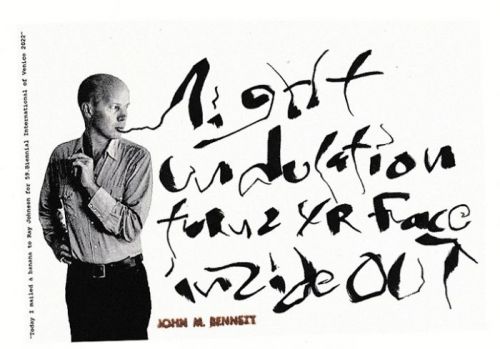 "Today I mailed a banana to Ray Johnson for 59.Biennial International of Venice 2022"
night
undulation
turnz YR Face
inzide OUT
JOHN M. BENNETT